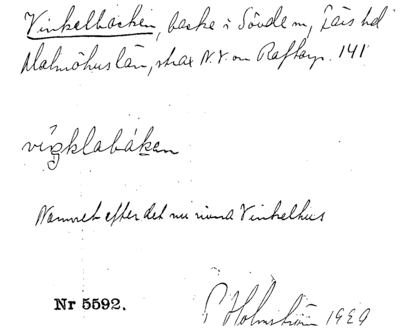 Vinkelbacken, backe i Sövde sn, Färs hd
Malmöhus län, strax N.V. om Raftarp. 141
vigklabákan
Namnet efter det nu rivna Vinkelhus
Nr 5592.
Holmström 1929